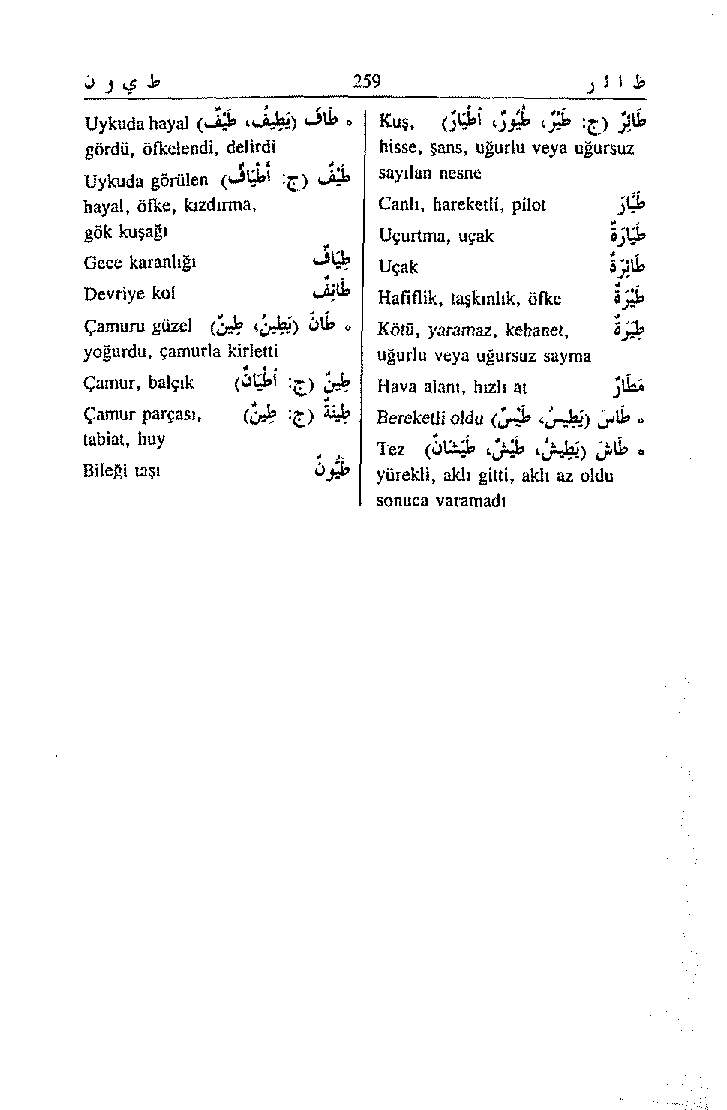 ط ا ئ ر 259 ط ي و ن
طَائِرٌ (ج: طَيْرٌ، طُيُورٌ، أَطْيَارٌ) Kuş,
hisse, şans, uğurlu veya uğursuz
sayılan nesne
طَيَّارٌ Canlı, hareketli, pilot
طَيَّارَةٌ Uçurtma, uçak
طَائِرَةٌ Uçak
طَيْرَةٌ Hafiflik, taşkınlık, öfke
طِيَرَةٌ Kötü, yaramaz, kehanet,
uğurlu veya uğursuz sayma
مَطَارٌ Hava alanı, hızlı at
• طَاسَ (يَطِيسُ، طَيْسٌ) Bereketli oldu
• طَاشَ (يَطِيشُ، طَيْشٌ، طَيَشَانٌ) Tez
yürekli, aklı gitti, aklı az oldu
sonuca varamadı
• طَافَ (يَطِيفُ، طَيْفٌ) Uykuda hayal
gördü, öfkelendi, delirdi
طَيْفٌ (ج: أَطْيَافٌ) Uykuda görülen
hayal, öfke, kızdırma,
gök kuşağı
طِيَافٌ Gece karanlığı
طَائِفٌ Devriye kol
• طَانَ (يَطِينُ، طِينٌ) Çamuru güzel
yoğurdu, çamurla kirletti
طِينٌ (ج: أَطْيَانٌ) Çamur, balçık
طِينَةٌ (ج: طِينٌ) Çamur parçası,
tabiat, huy
طَيُّونٌ Bileği taşı